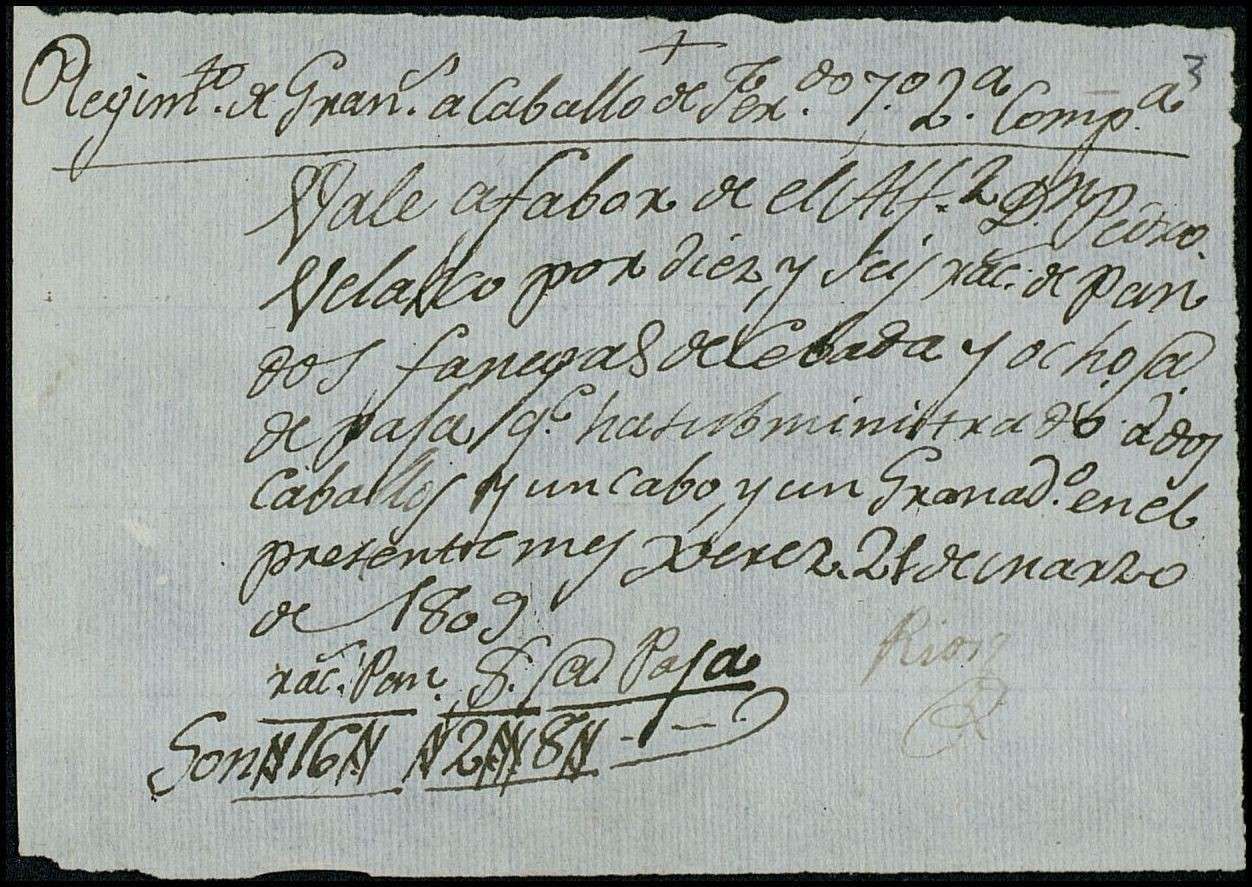 +
3
Regim.to de Gran.s a Caballo de Fer.do 7.o 2.a Comp.a
Vale a fabor de el Alf.z D.n Pedro
Velazco por diez y seis rac.s de pan
dos fanegas de Cebada y ocho @
de paja q.e ha subministrado a dos
Caballos y un cabo, y un Granad.o en el
presente mes Xerez 21 de marzo
de 1809
rac.s Pan. F. @ Paja
Son 16 2 8
Rios